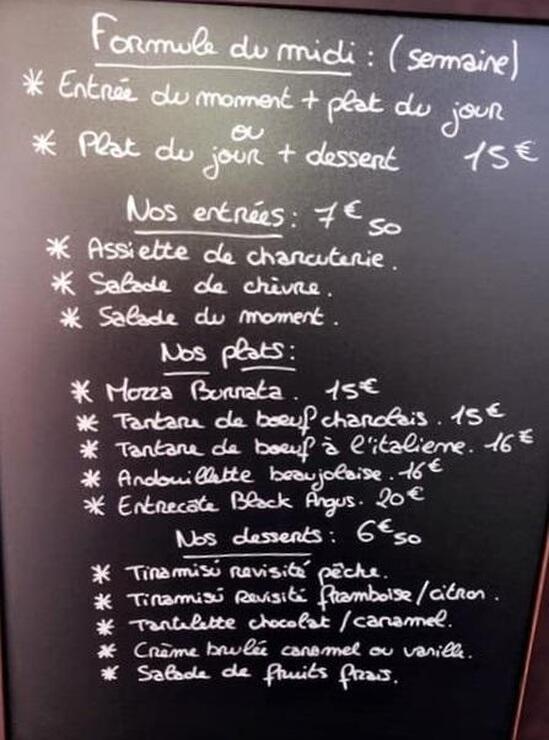 Formule du midi : (semaine)
* Entrée du moment + plat du jour
ou
* Plat du jour + dessert 15€
Nos entrées : 7€50
* Assiette de charcuterie.
* Salade de chèvre.
* Salade du moment.
Nos plats :
* Mozza Burrata. 15€
* Tartare de boeuf charolais. 15€
* Tartare de boeuf à l'italienne. 16€
* Andouillette beaujolaise. 16€
* Entrecôte Black Angus. 20€
Nos desserts : 6€50
* Tiramisú revisité pêche.
* Tiramisú Revisité framboise/citron.
* Tartelette chocolat/caramel.
* Crème brulée caramel ou vanille.
* Salade de fruits frais.